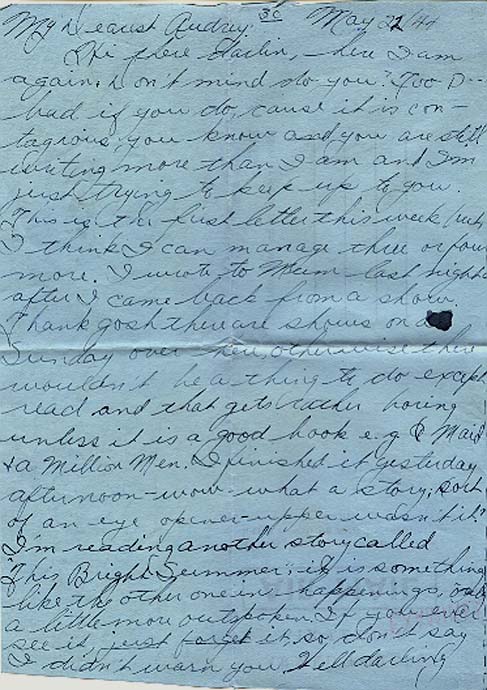 My Dearest Audrey: May 22/44
Hi there darlin, here I am
again. Don't mind do you? Too D--
bad if you do, cause it is con-
tagious, you know and you are still
writing more than I am and I'm
just trying to keep up to you.
This is the first letter this week but
I think I can manage three or four
more. I wrote to Mum last night
after I came back from a show.
Thank gosh there are shows on a
Sunday over here, otherwise there
wouldn't be a thing to do except
read and that gets rather boring
unless it is a good book e.g. A Maid
& a Million Men. I finished it yesterday
afternoon-wow-what a story; sort
of an eye opener-upper wasn't it?
I'm reading another story called
"This Bright Summer; it is something
like the other one in happenings, only
a little more outspoken. If you ever
see it, just forget it, so don't say
I didn't warn you. Well darling